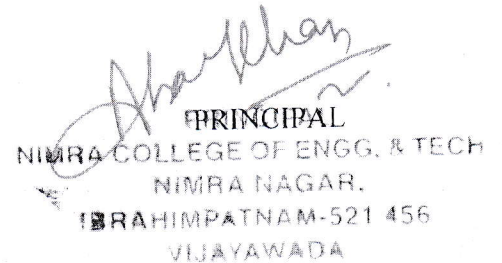 PRINCIPAL
NIMRA COLLEGE OF ENGG. & TECH
NIMRA NAGAR.
IBRAHIMPATNAM-521 456
VIJAYAWADA